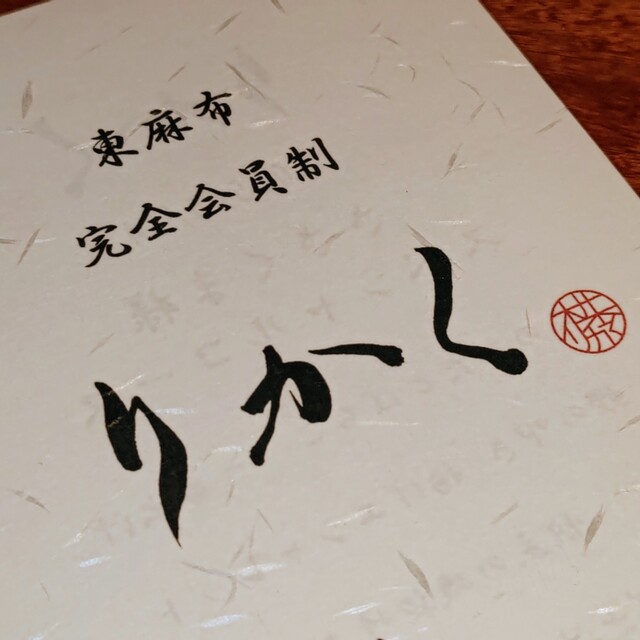 東麻布
完全会員制
りかし